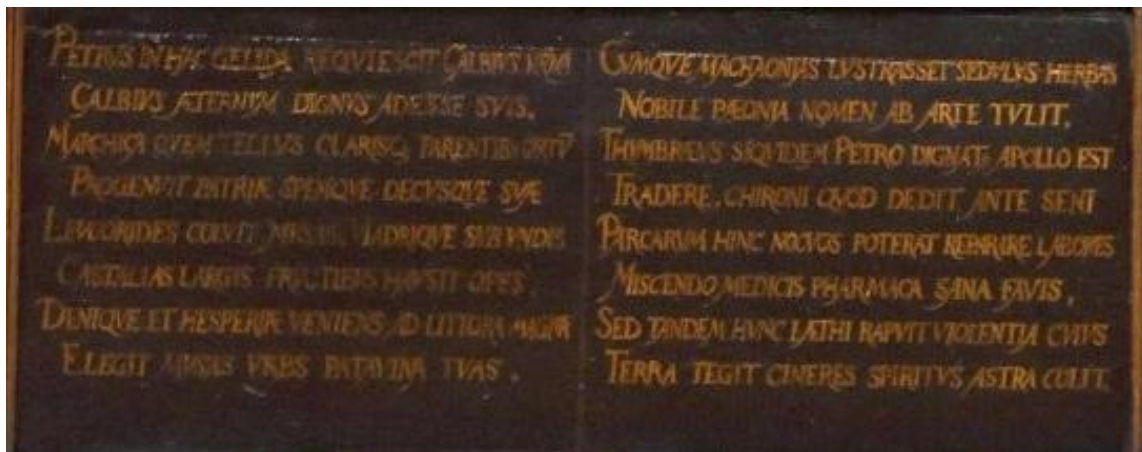 PETRVS IN HAC GELIDA REQVIESCIT CALBIVS VRNA
CALBIVS ÆTERNVM DIGNVS ADESSE SVIS.
MARCHICA QVEM TELLVS CLARISQ, PARENTIB, ORTV̄
PROGENVIT PATRIÆ SPEMQVE DECVSQVE SVÆ
LEVCORIDES COLVIT VIADRIQVE SVB VNDIS
CASTALIAS LARGIS HAVSIT OPES.
DENIQVE ET HESPERIÆ VENIENS AD LITTORA MAGNÆ
ELEGIT MVSAS VRBS PATAVINA TVAS.
CVMQVE MACHAONIAS LVSTRASSET SEDVLVS HERBAS
NOBILE PÆONIA NOMEN AB ARTE TVLIT.
THYMBRÆVS SIQVIDEM PETRO DIGNAT, APOLLO EST
TRADERE, CHIRONI QVOD DEDIT ANTE SENI
PARCARVM HINC NOCVOS POTERAT REPARARE LABORES
MISCENDO MEDICIS PHARMACA SANA FAVIS,
SED TANDEM HVNC LÆTHI RAPVIT VIOLENTIA CVIVS
TERRA TEGIT CINERES SPIRITVS ASTRA COLIT.